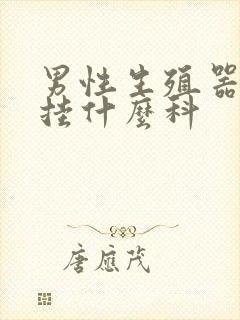 男性生殖器
挂什麽科
唐应茂